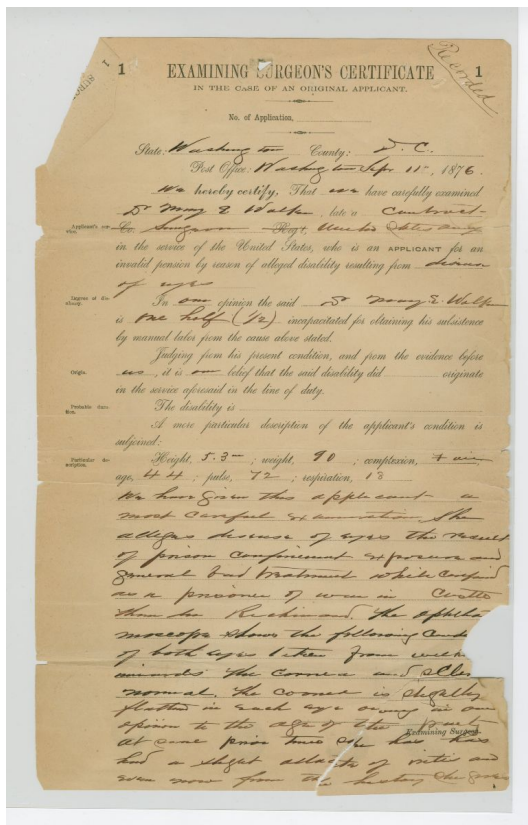 Recorded
1
EXAMINING SURGEON'S CERTIFICATE
1
IN THE CASE OF AN ORIGINAL APPLICANT.
No. of Application,
State: Washington County: D. C.
Post Office: Washington Sept 11, 1876.
We hereby certify, That we have carefully examined
Dr Mary E Walker, late a Contract
Co. Surgeon Reg't, United States
in the service of the United States, who is an APPLICANT for an
invalid pension by reason of alleged disability resulting from disease
of eyes
In our opinion the said Dr Mary E. Walker
is one half (1/2) incapacitated for obtaining his subsistence
by manual labor from the cause above stated.
Judging from his present condition, and from the evidence before
Origin.
us, it is our belief that the said disability did originate
in the service aforesaid in the line of duty.
The disability is
A more particular description of the applicant's condition is
subjoined:
Height, 5.3; weight, 90; complexion,
age, 44; pulse, 72; respiration, 18
We have given this applicant a
most careful examination. She
alleges disease of eyes the result
of prison confinement exposure and
general bad treatment while confined
as a prisoner of war in Castle
Thunder Richmond. The ophthal
moscope shows the following
of both eyes taken from
inwards The cornea and
normal. The cornea is slightly
flatted in each eye owing in our
opinion to the age of the
Examining Surgeon.
At some prior time she has
had a slight attack of iritis and
even now from the history